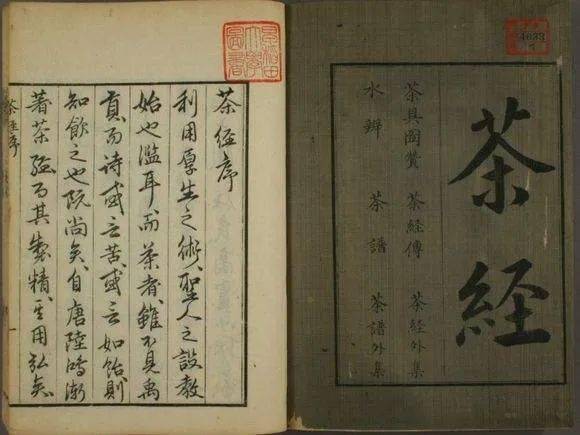 茶経
茶具圖贊 茶経傳 茶経外集
水辨 茶譜 茶譜外集
茶経序
利用厚生之術聖人之設教
始也濫耳而茶者雖不見禹
貢而詩或云苦或云如飴則
知飲之也既尚矣自唐陸鴻漸
著茶経而其製精其用弘矣
茶経序
一